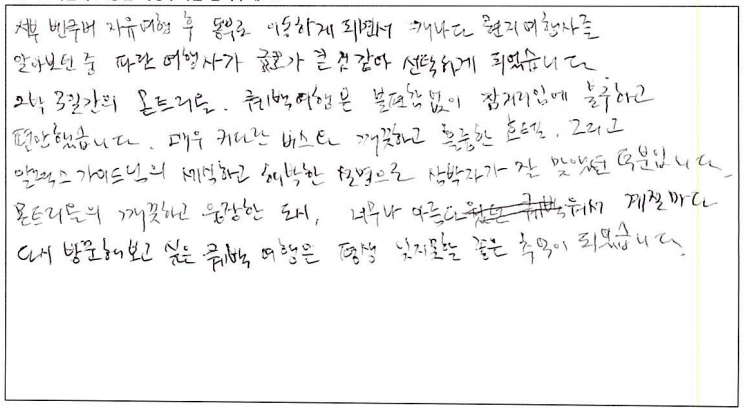 서부 벤쿠버 자유여행 후 동부로 이동하게 되면서 캐나다 현지여행사를
알아보던 중 파란여행사가 규모가 큰것같아 선택하게 되었습니다
2박 3일간의 몬트리올. 퀘백여행은 불편함없이 장거리임에 불구하고
편안했습니다. 매우 커다란 버스와 깨끗하고 훌륭한 호텔. 그리고
알렉스 가이드님의 세심하고 해박한 설명으로 삼박자가 잘 맞았던 덕분입니다.
몬트리올의 깨끗하고 웅장한 도시, 너무나 아름다워서 계절마다
다시 방문해보고 싶은 퀘백 여행은 평생 잊지못할 좋은 추억이 되었습니다.